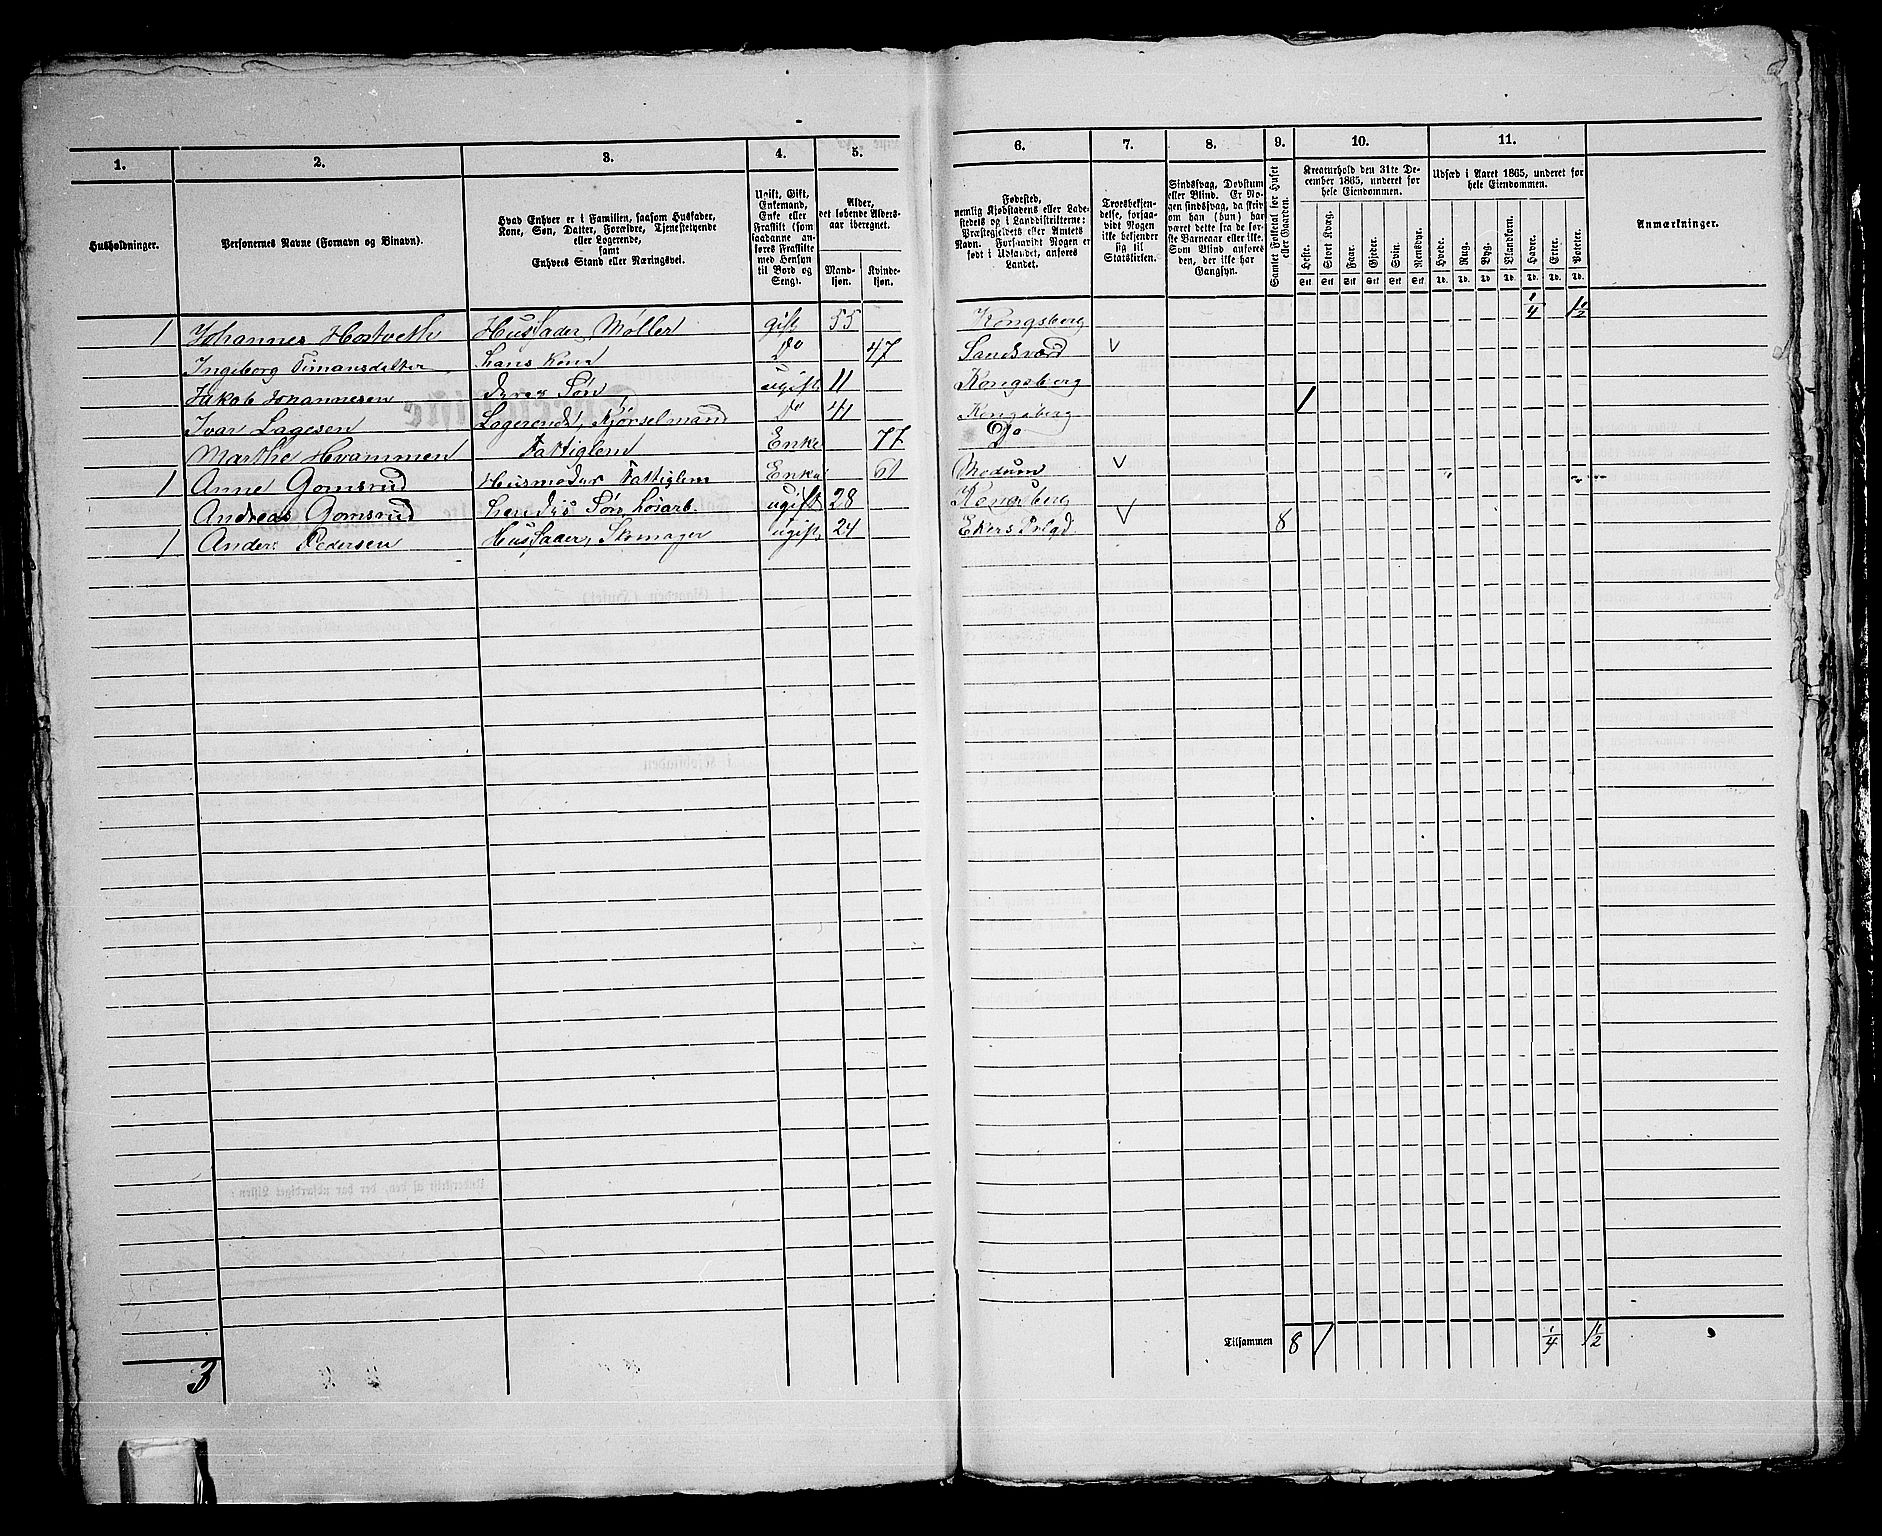 1. 2. 3. 4. 5. 6. 7. 8. 9. 10. 11.
Husholdninger.
Personernes Navne (Fornavn og Binavn).
Hvad Enhver er i Familien, saasom Husfader,
Kone, Søn, Datter, Forældre, Tjenestetyende
eller Logerende,
samt
Enhvers Stand eller Næringsvei.
Ugift, Gift,
Enkemand,
Enke eller
Fraskilt (som
saadanne an-
føres Fraskilte
med Hensyn
til Bord og
Seng).
Alder,
det løbende Alders-
aar iberegnet.
Mand-
kjøn.
Kvinde-
kjøn.
Fødested,
nemlig Kjøbstadens eller Lade-
stedets og i Landdistrikterne:
Præstegjeldets eller Amtets
Navn. Forsaavidt Nogen er
født i Udlandet, anføres
Landet.
Troesbekjen-
delse, forsaa-
vidt Nogen
ikke bekjender
sig til
Statskirken.
Sindssvag, Døvstum
eller Blind. Er No-
gen sindssvag, da skriv
om han (hun) har
været dette fra de før-
ste Barneaar eller ikke.
Som Blind anføres
den, der ikke har
Gangsyn.
Samlet Folketal for Huset
eller Gaarden.
Kreaturhold den 31te De-
cember 1865, underet for
hele Eiendommen.
Heste. Stort Kvæg. Faar. Gjeder. Svin. Rensdyr.
Stk. Stk. Stk. Stk. Stk. Stk.
Udsæd i Aaret 1865, underet for
hele Eiendommen.
Hvede. Rug. Byg. Blandkorn. Havre. Erter. Poteter.
Td. Td. Td. Td. Td. Td. Td.
Anmærkninger.
1 Johannes Hostveth Husfader, Møller gift 55 Kongsberg 1/4 1 1/2
Ingeborg Timansdatter hans Kone Do 47 Sandsværd V
Jakob Johannesen deres Søn ugift 11 Kongsberg
Ivar Lagesen Logerende, Kjørselmand Do 41 Kongsberg 1
Marthe Hvammen Fattiglem Enke 77 Do
1 Anne Gomsrud Husmoder Fattiglem Enke 61 Modum V
Andreas Gomsrud hendes Søn, løsarb. ugift 28 Kongsberg
1 Anders Pedersen Husfader, Skomager ugift 24 Ekers Prlgd V 8
Tilsammen 8 1 1/4 1 1/2
3